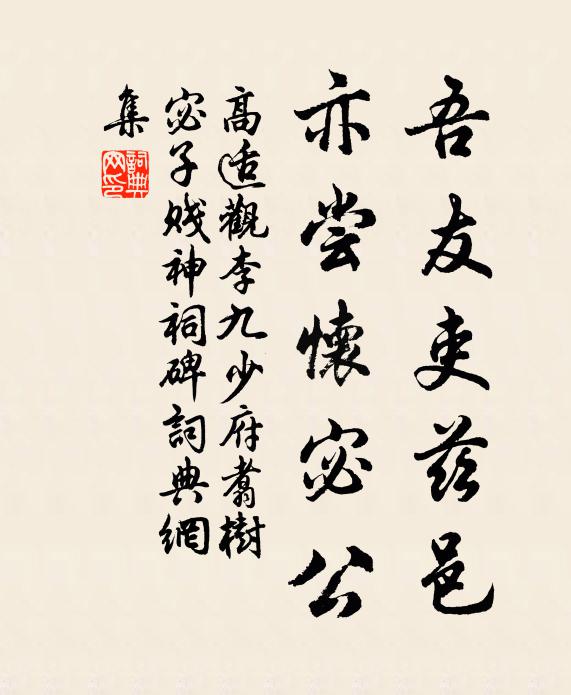 吾友吏茲邑
亦嘗懷宓公
高適觀李九少府翥樹
宓子賤神祠碑詞典網
集
詞典
网印